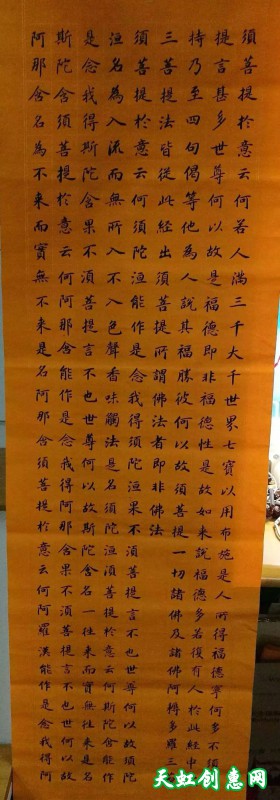 須菩提於意云何若人滿三千大千世界七寶以用布施是人所得福德寧何多不須
提言甚多世尊何以故是福德即非福德性是故如來說福德多若復有人於此經中
持乃至四句偈等他為人說其福勝彼何以故須菩提一切諸佛及諸佛阿耨多羅三
三菩提法皆從此經出須菩提所謂佛法者即非佛法
須菩提於意云何須陀洹能作是念我得須陀洹果不須菩提言不也世尊何以故須陀
洹名為入流而無所入不入色聲香味觸法是名須陀洹須菩提於意云何斯陀含能作
是念我得斯陀含果不須菩提言不也世尊何以故斯陀含名一往來而實無往來是名
斯陀含須菩提於意云何阿那含能作是念我得阿那含果不須菩提言不也世何以故
阿那含名為不來而實無不來是名阿那含須菩提於意云何阿羅漢能作是念我得阿
天虹创惠网